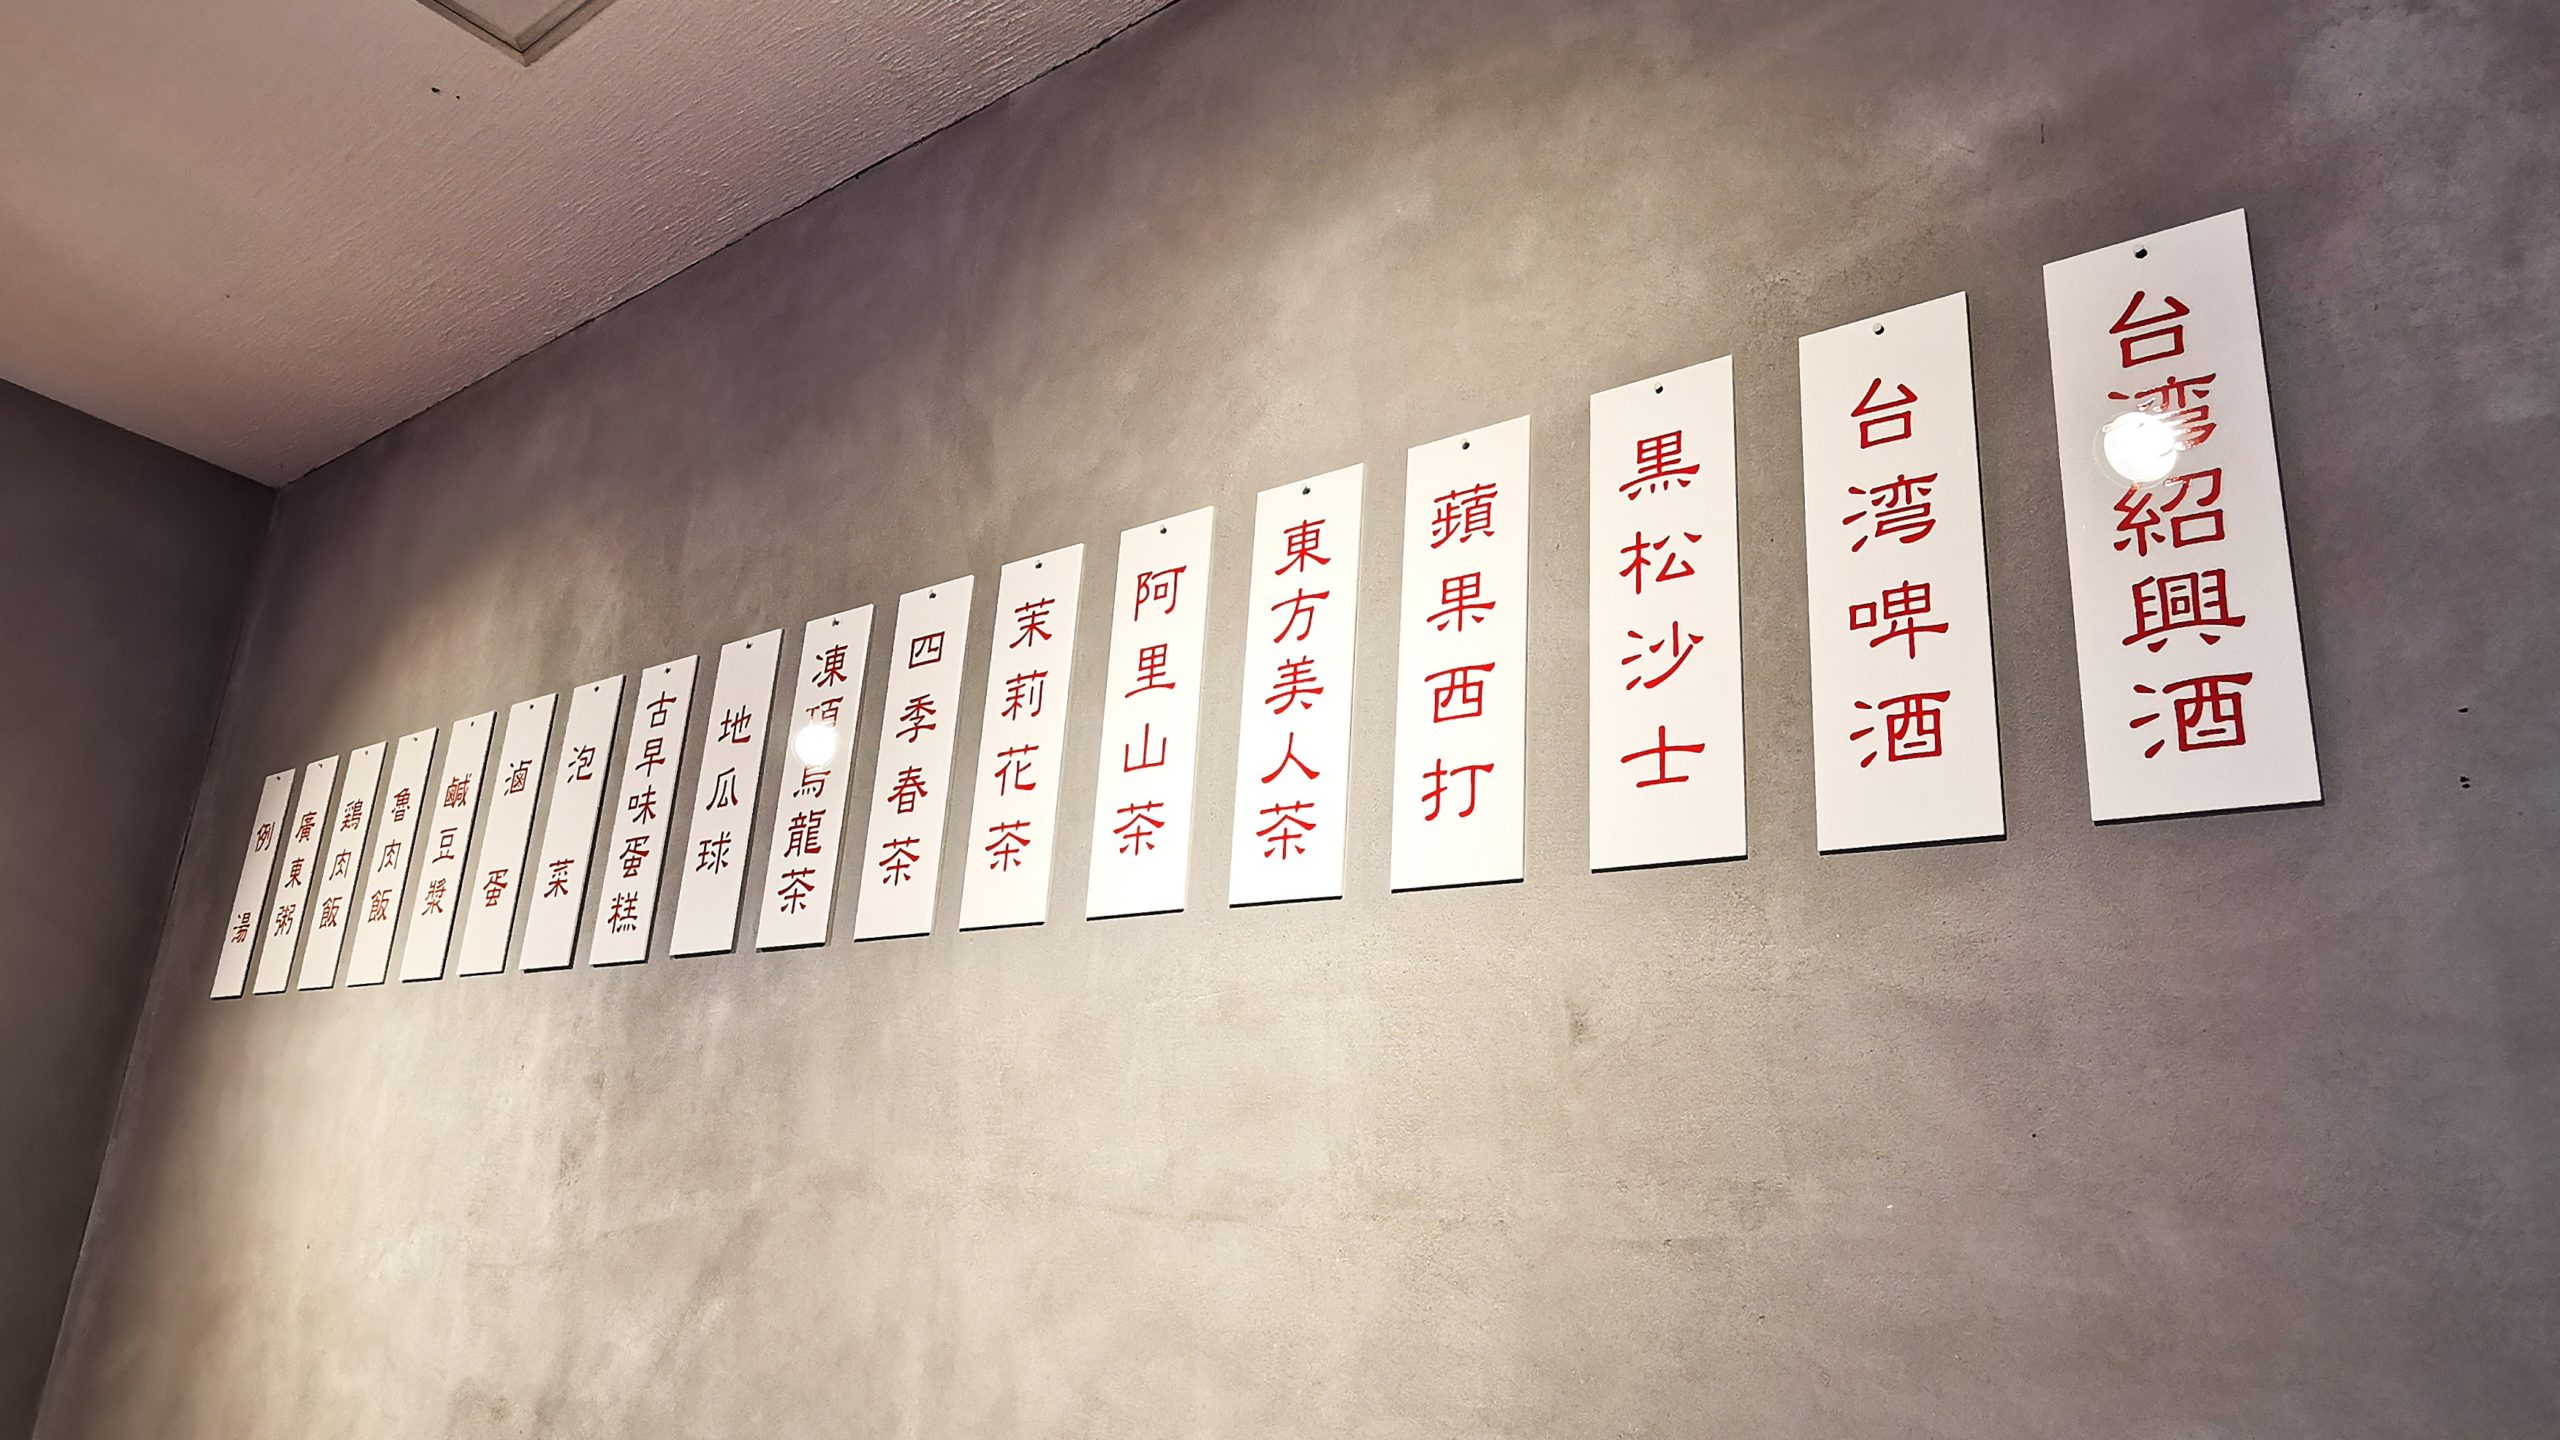 台湾紹興酒
台湾啤酒
黒松沙士
蘋果西打
東方美人茶
阿里山茶
茉莉花茶
四季春茶
凍頂烏龍茶
地瓜球
古早味蛋糕
泡菜
滷蛋
鹹豆漿
魯肉飯
鶏肉飯
廣東粥
例湯